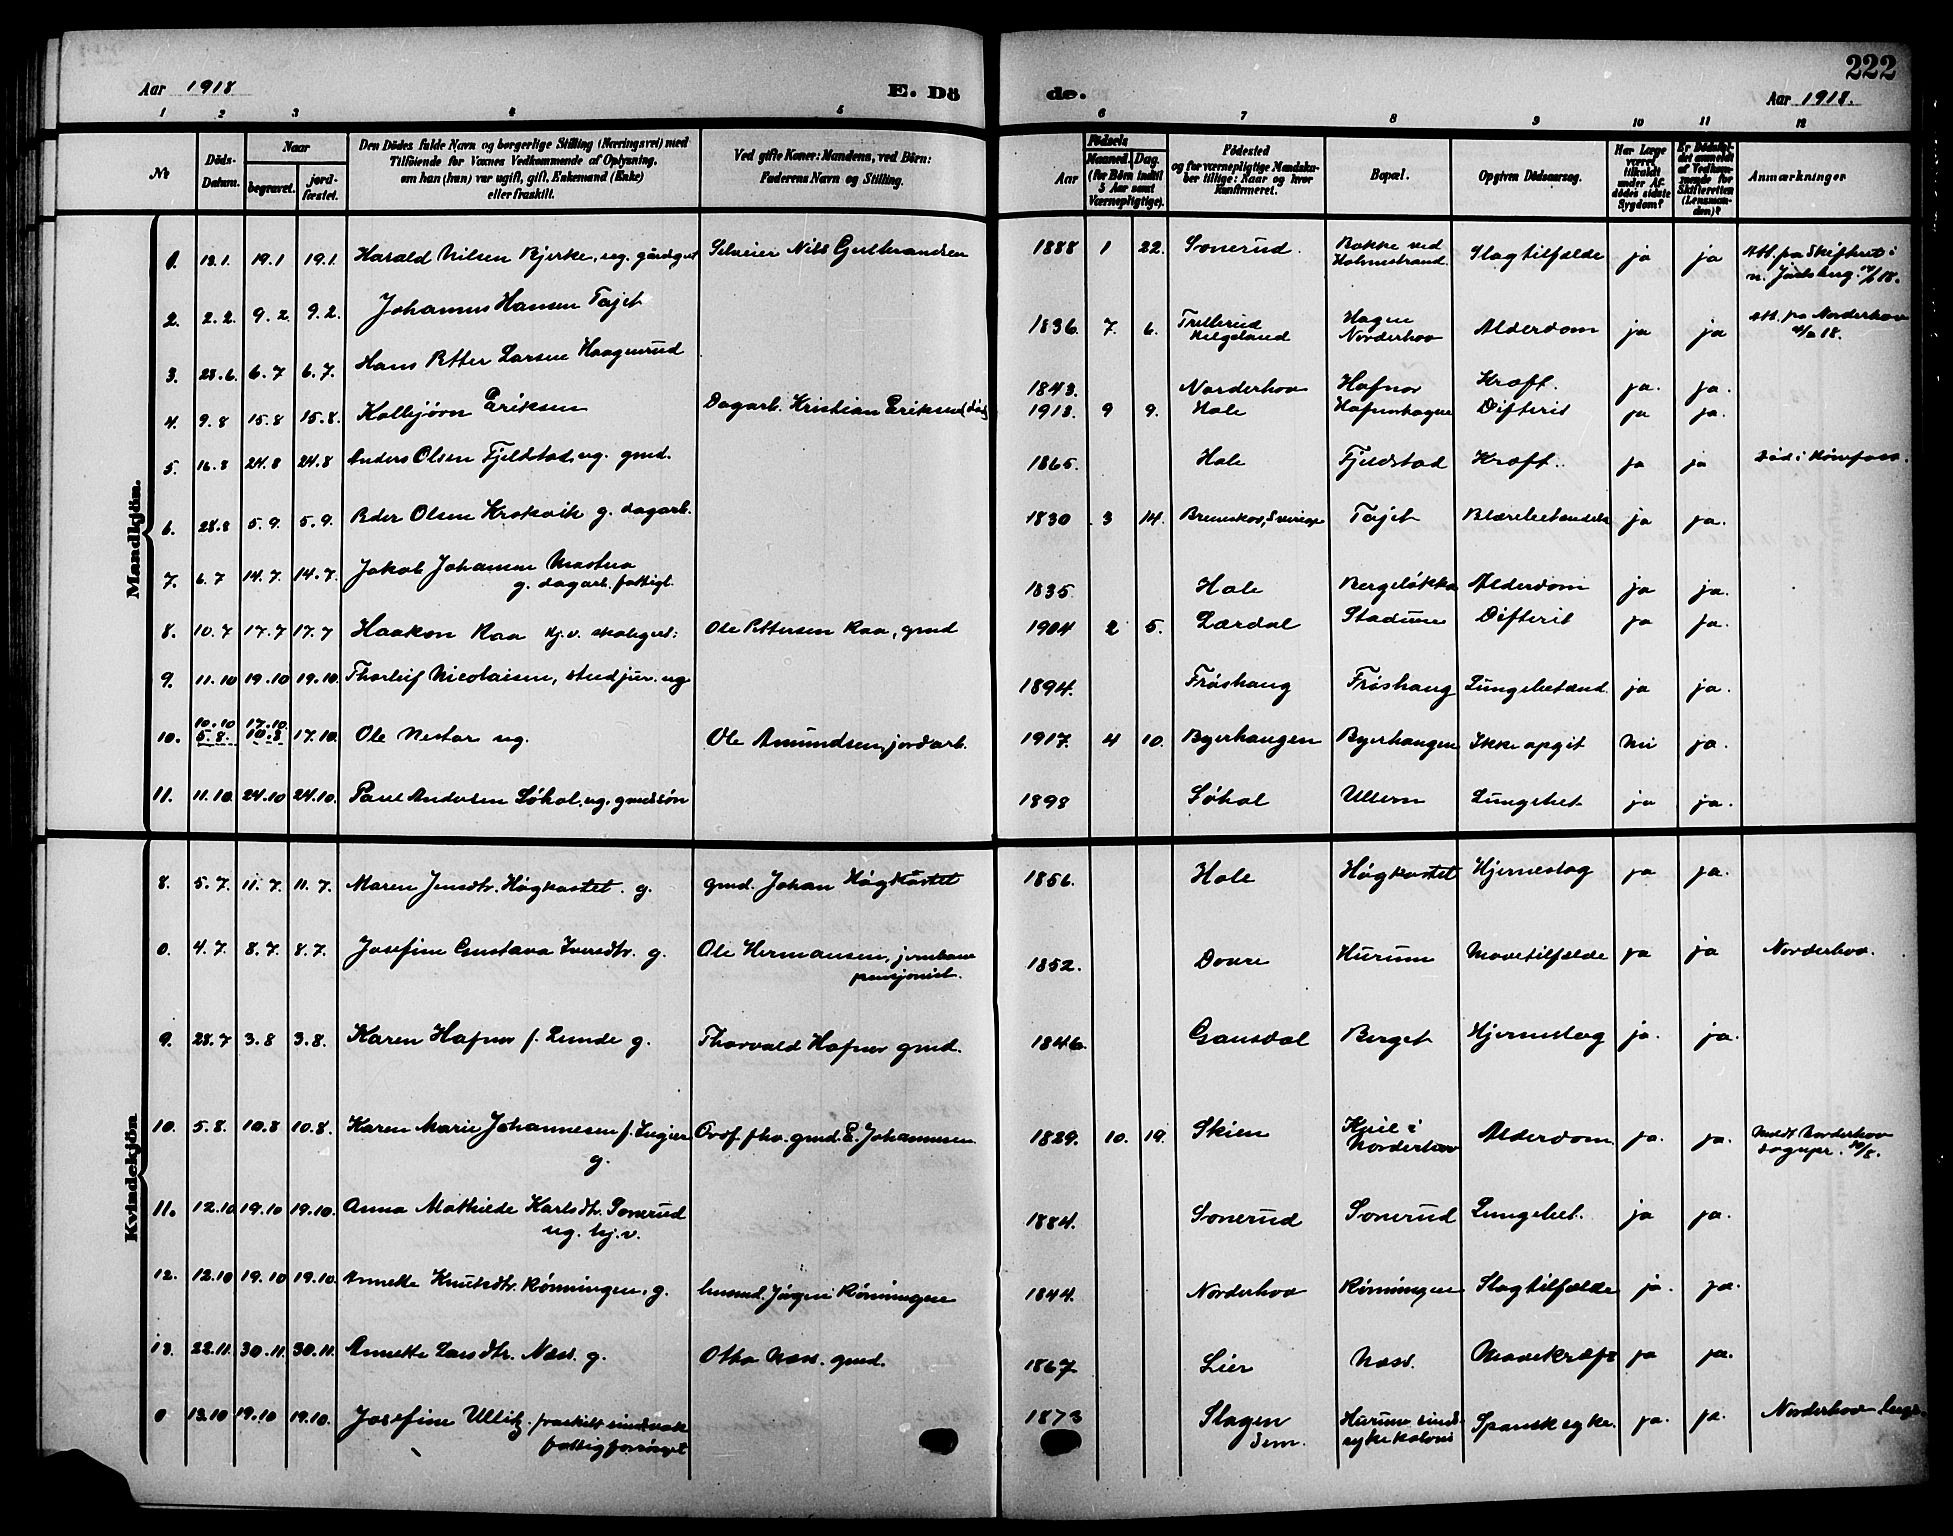 222
Aar 1918
E. Dö
de.
Aar 1918.
1 2 3 4 5 6 7 8 9 10 11 12
No
Döds-
Datum.
Naar
begravet.
jord-
fæstet.
Den Dödes fulde Navn og borgerlige Stilling (Næringsvei) med
Tilföiende for Voxnes Vedkommende af Oplysning,
om han (hun) var ugift, gift, Enkemand (Enke)
eller fraskilt.
Ved gifte Koner: Mandens, ved Börn:
Faderens Navn og Stilling.
Födsels
Aar
Maaned. Dag.
(for Börn indtil
5 Aar samt
Værnepligtige).
Födested
og for værnepligtige Mandska-
ber tillige: Naar og hvor
konfirmeret.
Bopæl.
Opgiven Dödsaarsag.
Har Læge
været
tilkaldt
under Af-
dödes sidste
Sygdom?
Er Dödsfal-
det anmeldt
af Vedkom-
mende for
Skifteretten
(Lensman-
den)?
Anmærkninger
Mandkjön.
1. 13.1. 19.1 19.1. Harald Nilsen Bjerke, ug. gårdgut Selveier Nils Gulbrandsen 1888 1 22. Sonerud. Bakke ved Holmestrand. Slagtilfælde ja ja
2. 2.2. 9.2. 9.2. Johannes Hansen Tajet 1836. 7. 6. Helgeland Hagen Norderhov Alderdom ja ja Att. fra Norderhov
3. 28.6. 6.7 6.7. Hans Petter Larsen Haagenrud 1843. Norderhov Hafnor Kræft. ja. ja.
4. 9.8 15.8 15.8. Kolbjørn Eriksen Dagarb. Kristian Eriksen 1913. 9 9. Hole Hafnorhagen Difterit ja ja.
5. 16.8 24.8 24.8 Anders Olsen Fjeldstad, ug. gmd. 1865. Hole Fjeldstad Kræft. ja ja Død i Hønefoss.
6. 28.8 5.9. 5.9. Peder Olsen Krokvik g. dagarb. 1830 3 14. Sverige Tajet Blærebetændelse ja ja.
7. 6.7 14.7. 14.7. Jakob Johansen
g. dagarb. fattigl. 1835. Hole Bergeløkka Alderdom ja ja.
8. 10.7 17.7 17.7 Haakon Raa hj.v. skolegut: Ole Pettersen Raa, gmd 1904 2 5. Lærdal Stadum Difterit ja ja.
9. 11.10 19.10 19.10. Thorleif Nicolaisen, stud jur. ug 1894. Frøshaug Frøshaug Lungebetænd. ja ja.
10.10 17.10
10. 5.8. 10.8 17.10. Ole Nestor ug. Ole Amundsen, jordarb. 1917. 4 10. Byerhaugen Byerhaugen Ikke opgit Nei ja.
11. 11.10 24.10 24.10. Paul Andersen Løhol, ug. gmdssøn 1898 Løhol Ullern Lungebet ja ja.
Kvindekjön
8. 5.7. 11.7. 11.7. Maren Jensdtr. Høgkastet. g. gmd. Johan Høgkastet 1856. Hole Høgkastet Hjerneslag ja ja.
0. 4.7. 8.7. 8.7. Josefine Gustava Iversdtr. g. Ole Hermansen, jernbane
pensjonist. 1852. Dovre Hurum Mavetilfælde ja ja Norderhov.
9. 28.7 3.8 3.8. Karen Hafnor f. Lunde g. Thorvald Hafnor gmd. 1846. Gausdal Berget Hjerneslag ja. ja.
10. 5.8. 10.8 10.8. Karen Marie Johannesen f. Ingier Prof. fhv. gmd. E. Johannesen
g. 1829. 10. 19. Skien i Norderhov Alderdom. ja. ja. Meldt Norderhov
11. 12.10 19.10 19.10. Anna Mathilde Karlsdtr. Sonerud
ug. hj.v. 1884. Sonerud Sonerud Lungebet. ja ja.
12. 12.10 19.10 19.10. Annette Knutsdtr. Rønningen, g. husmd. Jørgen Rønningen 1844. Norderhov Rønningen Slagtilfælde ja. ja.
13. 22.11. 30.11. 30.11. Annette Larsdtr. Næss. g. Otto Næss. gmd. 1867 Lier Næss. Mavekræft ja ja.
0 13.10 19.10 19.10. Josefine Ullitz. fraskilt sindssyk
fattigforsørget 1873 Slagen
Sem. Hurum sinds-
sykekoloni Spansk syke. ja. ja. Norderhov